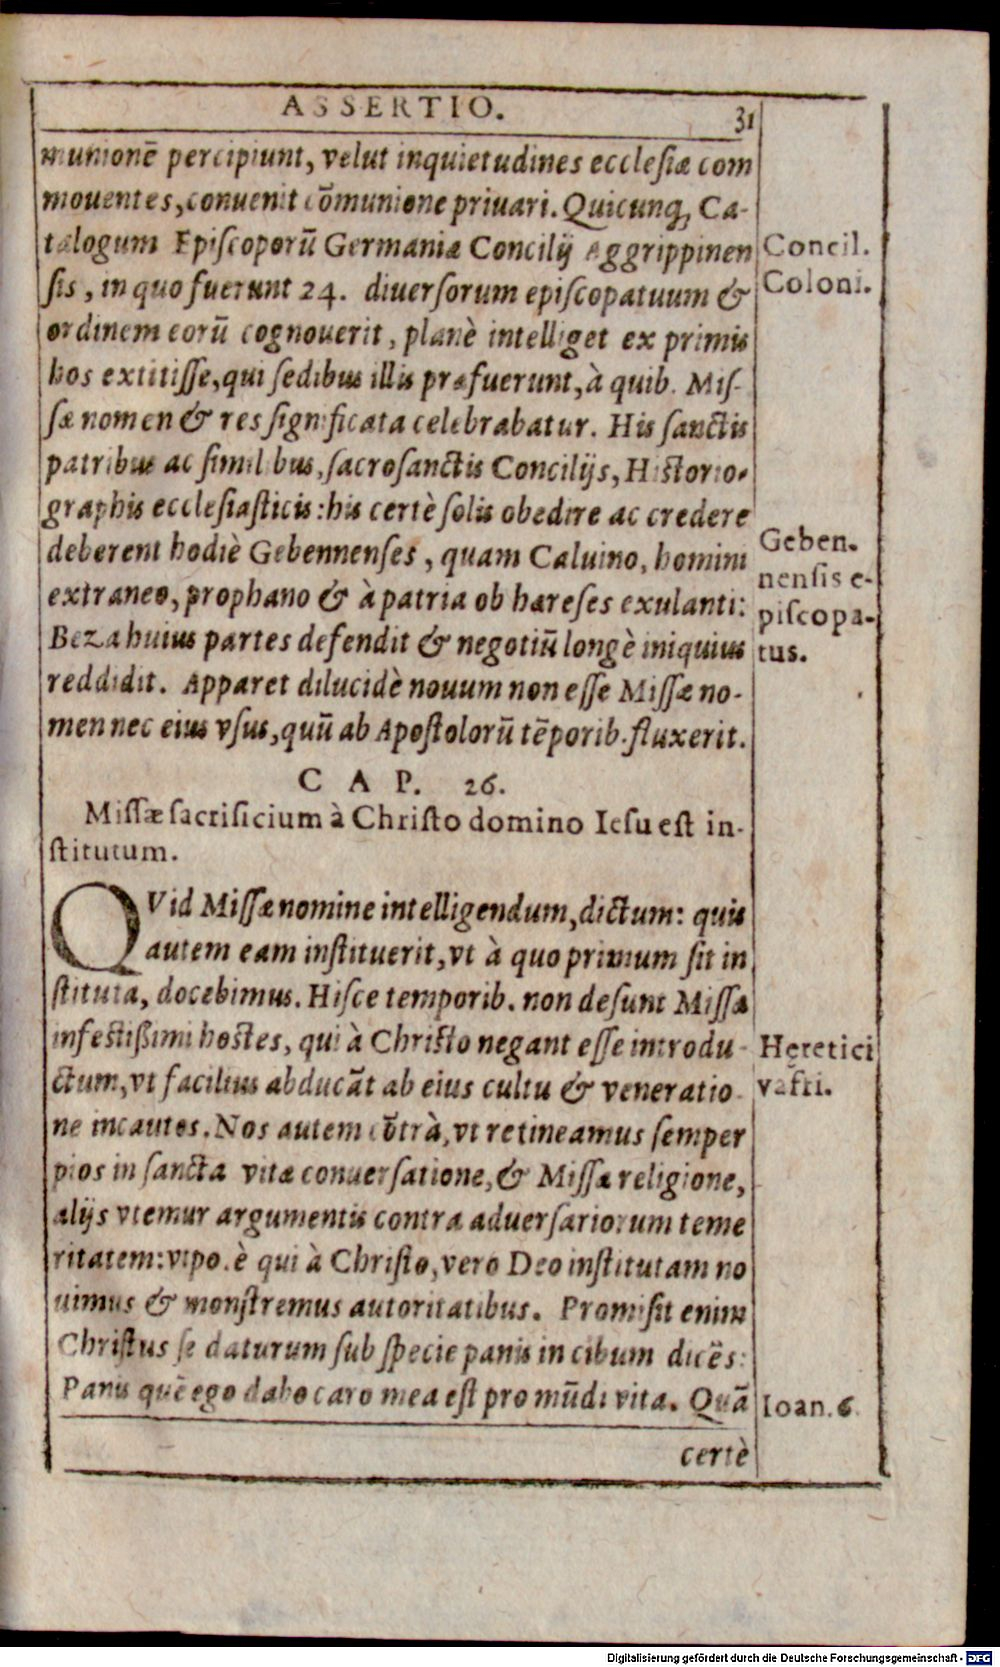 ASSERTIO. 31
munionē percipiunt, velut inquietudines ecclesiæ com
mouentes, conuenit cōmunione priuari. Quicunq; Ca-
talogum Episcoporū Germaniæ Concilij Aggrippinen
sis, in quo fuerunt 24. diuersorum episcopatuum &
ordinem eorū cognouerit, planè intelliget ex primis
hos extitisse, qui sedibus illis præfuerunt, à quib. Mis-
sæ nomen & res significata celebrabatur. His sanctis
patribus ac similibus, sacrosanctis Concilijs, Historio-
graphis ecclesiasticis: his certè solis obedire ac credere
deberent hodiè Gebennenses, quam Caluino, homini
extraneo, prophano & à patria ob hæreses exulanti:
Beza huius partes defendit & negotiū longè iniquius
reddidit. Apparet dilucidè nouum non esse Missæ no-
men nec eius vsus, quū ab Apostolorū tēporib. fluxerit.
Concil.
Coloni.
Geben.
nensis e-
piscopa-
tus.
CAP. 26.
Missæ sacrificium à Christo domino Iesu est in-
stitutum.
QVid Missæ nomine intelligendum, dictum: quis
autem eam instituerit, vt à quo primum sit in
stituta, docebimus. Hisce temporib. non desunt Missæ
infestißimi hostes, qui à Christo negant esse introdu-
ctum, vt facilius abducāt ab eius cultu & veneratio-
ne incautos. Nos autem cōtrà, vt retineamus semper
pios in sancta vitæ conuersatione, & Missæ religione,
alijs vtemur argumentis contra aduersariorum teme
ritatem: vtpo.è qui à Christo, vero Deo institutam no
uimus & monstremus autoritatibus. Promisit enim
Christus se daturum sub specie panis in cibum dicēs:
Panis quē ego dabo caro mea est pro mūdi vita. Quā
Hęretici
vafri.
Ioan. 6.
certè
Digitalisierung gefördert durch die Deutsche Forschungsgemeinschaft - DFG